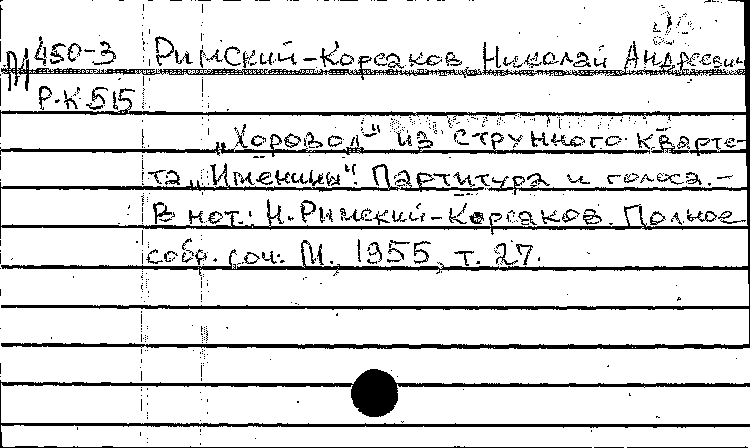 20
М 450-3 Римский-Корсаков, Николай Андреевич
Р-К 515
„Хоровод" из струнного кварте-
та „Именины". Партитура и голоса.-
В нот.: Н. Римский-Корсаков. Полное
собр. соч. М., 1955, т. 27.